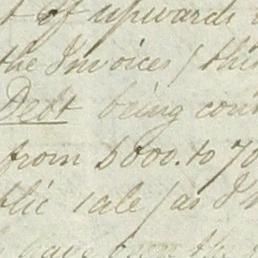 of upwards
the Invoices / this
Debt being con
from 6000. to 70
blic sale / as I
have